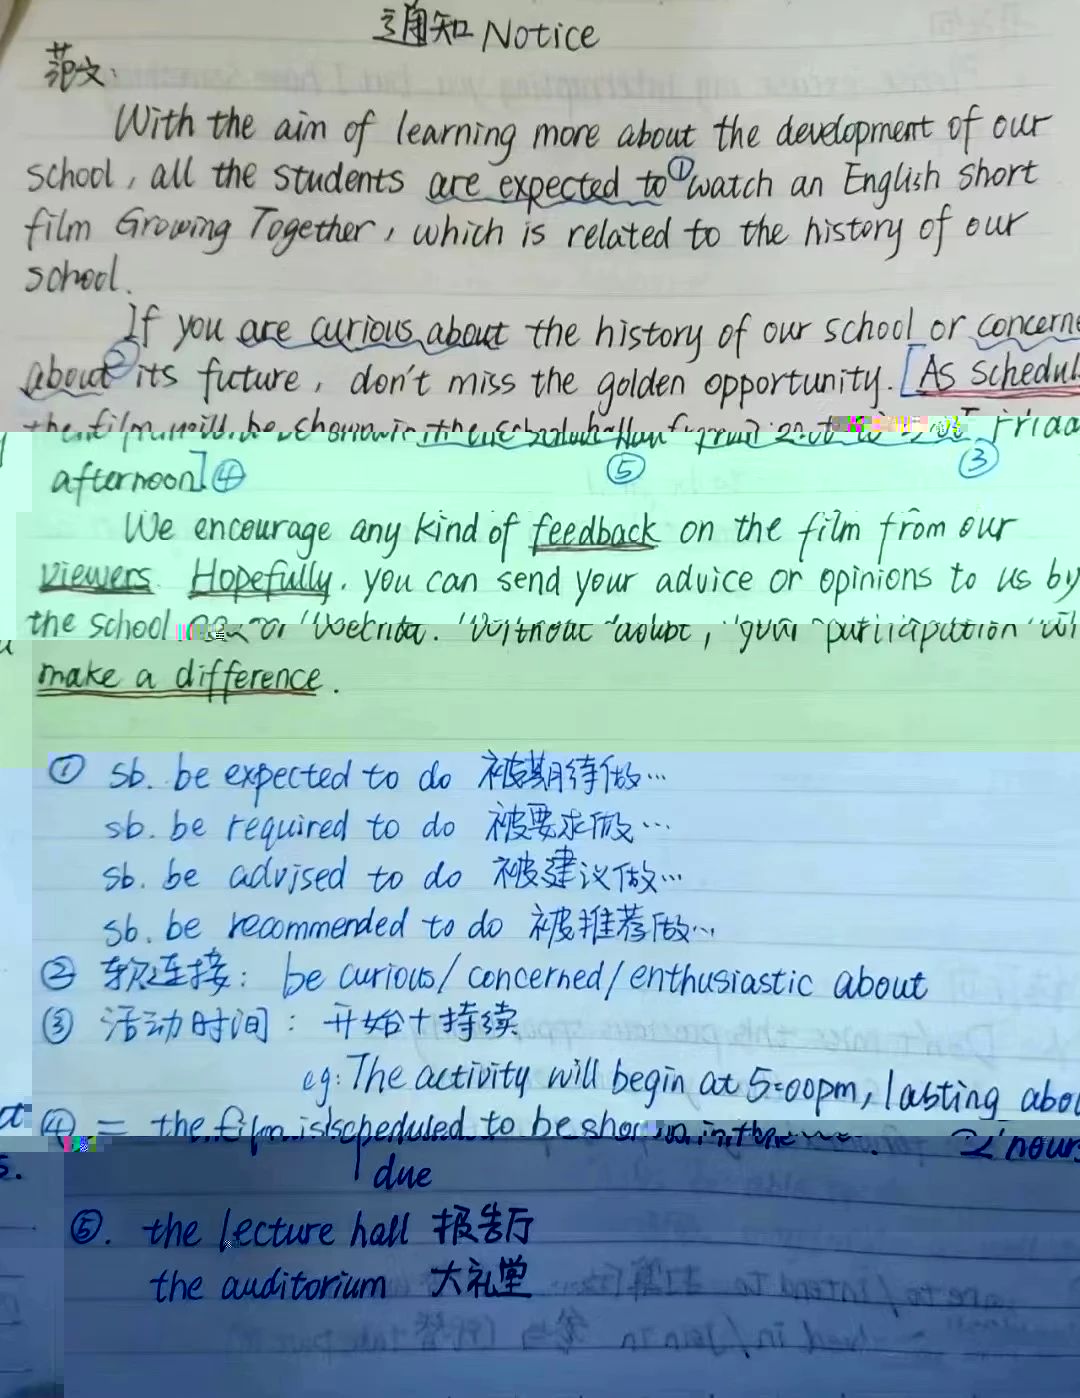 通知 Notice
范文:
With the aim of learning more about the development of our
school, all the students are expected to ① watch an English short
film Growing Together, which is related to the history of our
school.
If you are curious about the history of our school or concerne
about ② its future, don't miss the golden opportunity. [As schedul
the film will be shown in the school hall from to Frida
afternoon] ④ ⑤ ③
We encourage any kind of feedback on the film from our
viewers. Hopefully, you can send your advice or opinions to us by
the school or website. Without doubt, your participation wil
make a difference.
① sb. be expected to do 被期待做…
sb. be required to do 被要求做…
sb. be advised to do 被建议做…
sb. be recommended to do 被推荐做…
② 软连接: be curious/ concerned/ enthusiastic about
③ 活动时间: 开始+持续
eg: The activity will begin at 5:00pm, lasting abou
④ = the film is scheduled to be shown in the 2 hours
due
⑤. the lecture hall 报告厅
the auditorium 大礼堂